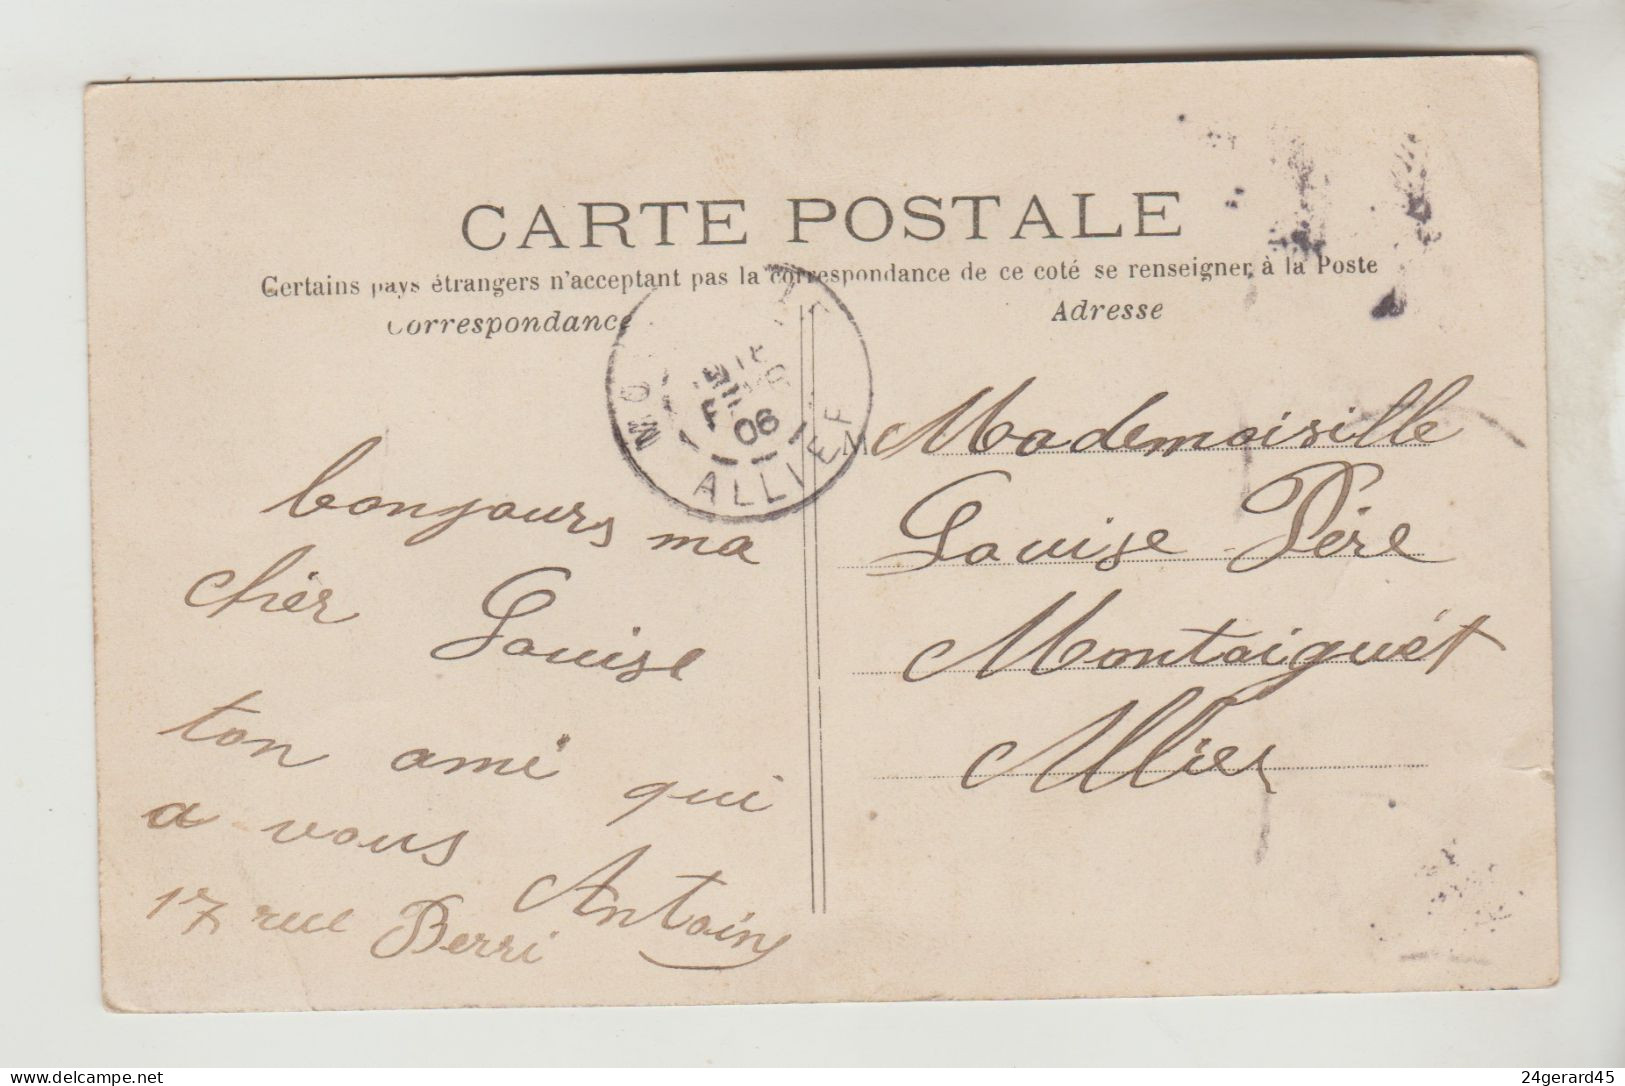 CARTE POSTALE
Certains pays étrangers n'acceptant pas la correspondance de ce coté se renseigner à la Poste
Correspondance
Adresse
06
ALLIER
bonjours ma
cher Louise
ton ami qui
a vous
Antoin
17 rue Berri
M Mademoiselle
Louise Père
Montaiguét
Allier
delcampe.net
24gerard45